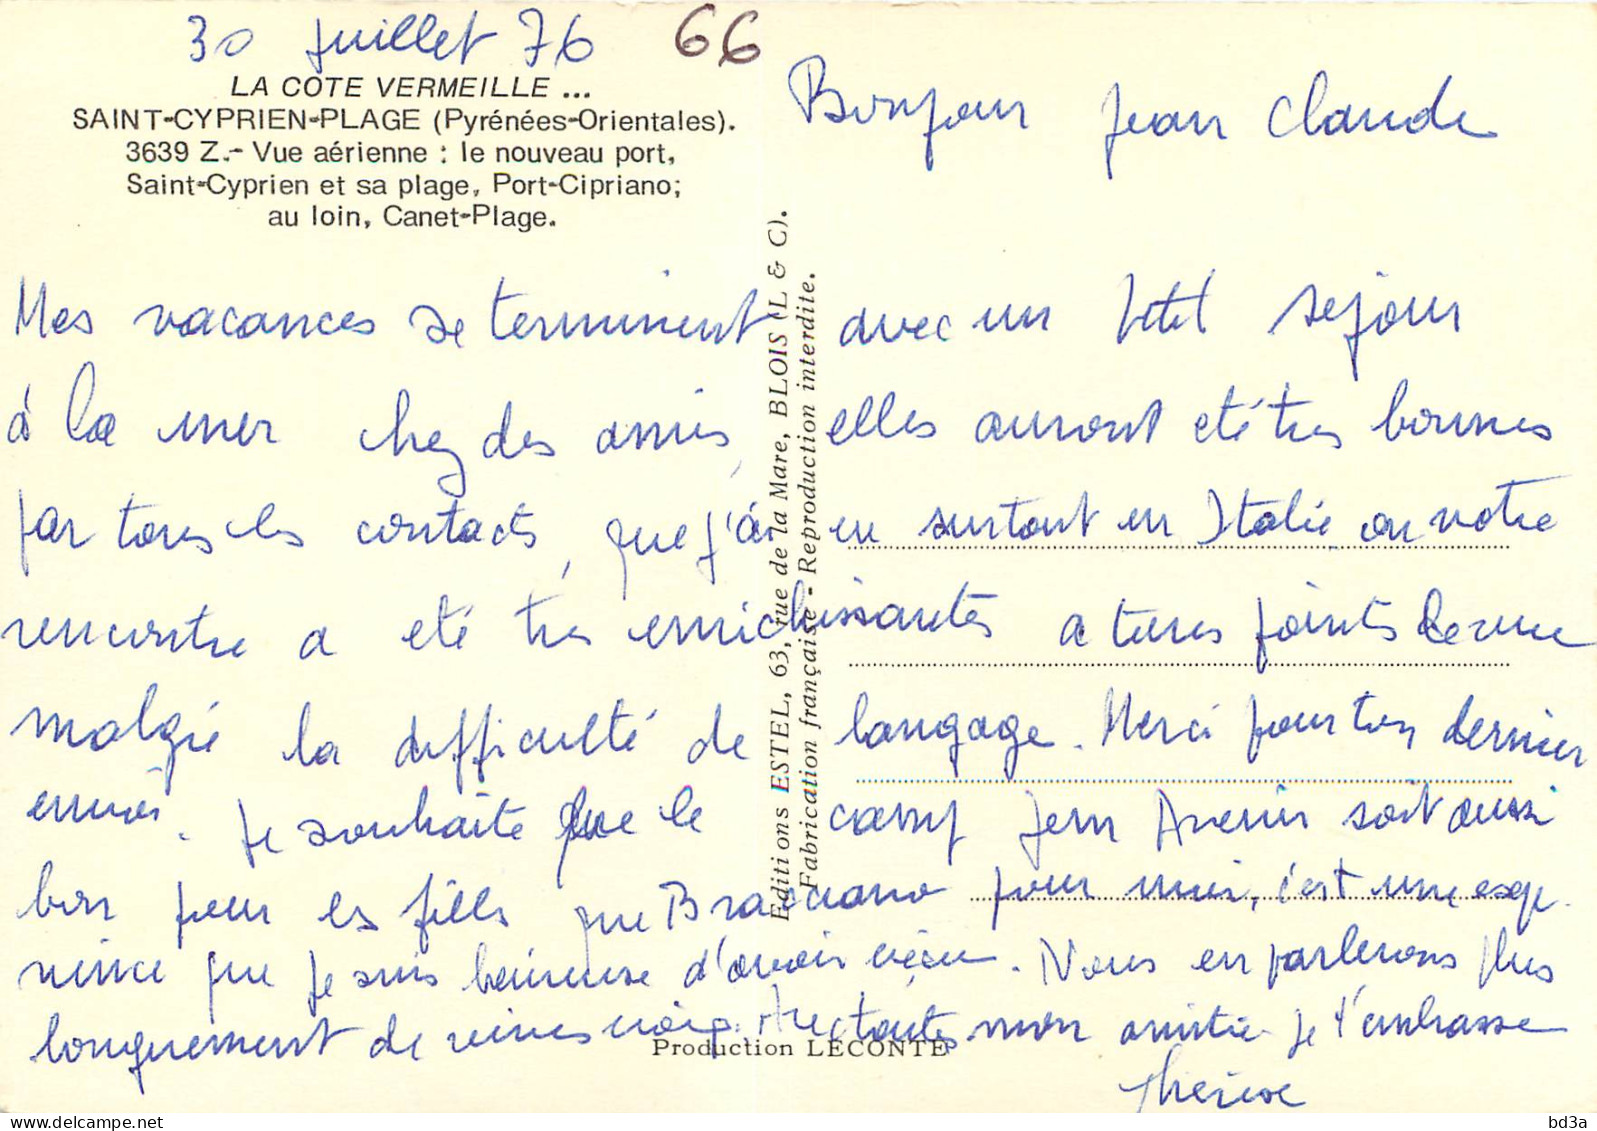 30 juillet 76 66
LA COTE VERMEILLE ...
SAINT-CYPRIEN-PLAGE (Pyrénées-Orientales).
3639 Z.- Vue aérienne : le nouveau port,
Saint-Cyprien et sa plage, Port-Cipriano;
au loin, Canet-Plage.
Bonjour Jean Claude
Mes vacances se terminent avec un petit sejour
à la mer chez des amis, elles auront eté tres bonnes
par tous les contacts, que j'ai eu surtout en Italie, ou notre
rencontre a eté tres enrichissantes a tous points de vue
malgré la difficulté de langage. Merci pour ton dernier
envoi. Je souhaite que le camp Jeun Avenir soit aussi
bon pour les fills que Bracciano pour moi, c'est une expe-
rience que je suis heureuse d'avoir vécu. Nous en parlerons plus
longuement de vives voix. Avec toutes mon amitié je t'embrasse
Thérèse
Editions ESTEL, 63, rue de la Mare, BLOIS (L & C).
Fabrication française - Reproduction interdite.
Production LECONTE
delcampe.net
bd3a